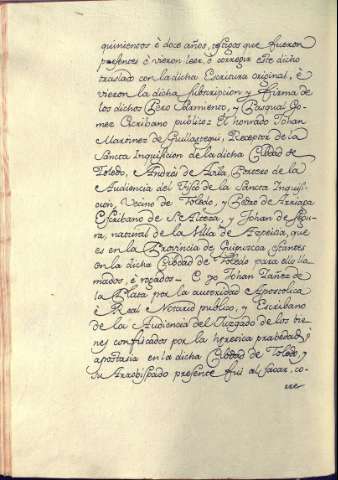 quinientos è doce años, testigos que fueron
presentes è vieron leer, è corregir este dicho
traslado con la dicha Escritura original, è
vieron la dicha subscripcion y firma de
los dichos Pero Sarmiento, y Pasqual Go-
mez Escribano publico: El honrado Johan
Martinez de Guillastegui, Receptor de la
Sancta Inquisicion de la dicha Cibdad de
Toledo, Andrès de Avila Portero de la
Audiencia del Oficio de la Sancta Inquisi-
cion, Vecino de Toledo, y Pedro de Arriapa
Escribano de S. Alteza, y Johan de Segu-
ra, natural de la Villa de Azpeitia, que
es en la Provincia de Guipuzcoa, estantes
en la dicha Cibdad de Toledo para ello lla-
mados, è rogados = E yo Johan Yañez de
la Plata por la autoridad Apostolica
è Real Notario publico, y Escribano
de la Audiencia del Juzgado de los bie-
nes confiscados por la heretica prabedad, y
apostasia en la dicha Cibdad de Toledo, y
su Arzobispado presente fui al sacar, co-
rre